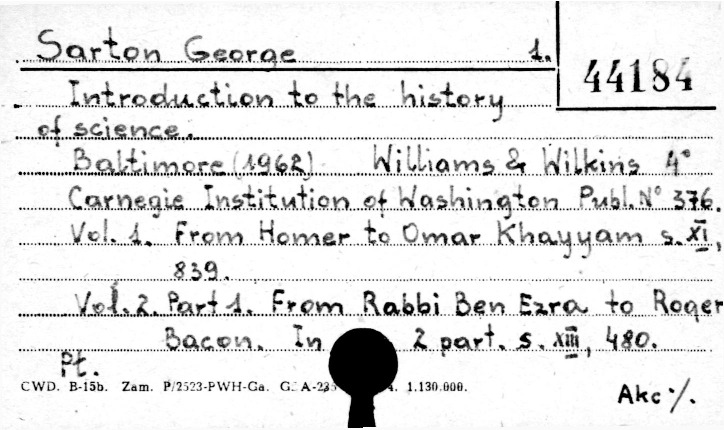 Sarton George 1.
44184
Introduction to the history
of science.
Baltimore (1962) Williams & Wilkins 4°
Carnegie Institution of Washington Publ. N° 376.
Vol. 1. From Homer to Omar Khayyam s. XI,
839.
Vol. 2. Part 1. From Rabbi Ben Ezra to Roger
Bacon. In 2 part. s. XIII, 480.
Pt.
CWD. B-15b. Zam. P/2523-PWH-Ga. 1.130.000.
Akc ·/.